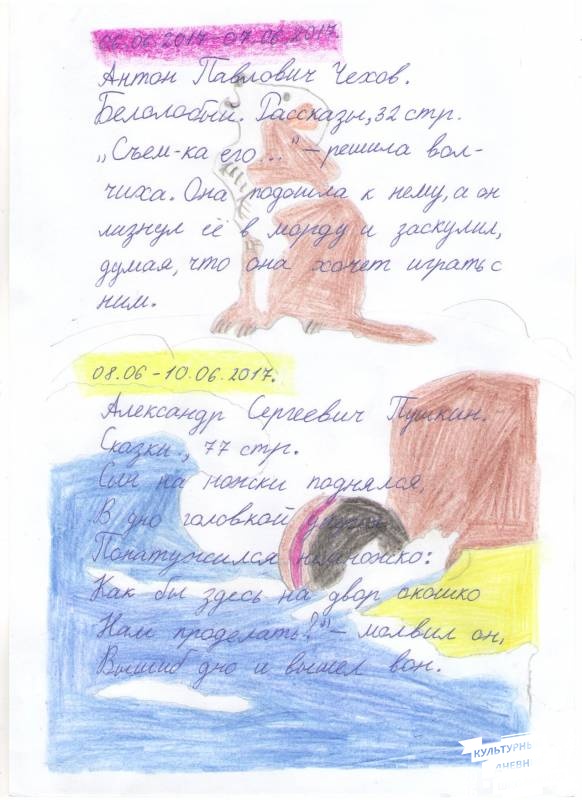 06.06 2017-07.06.2017.
Антон Павлович Чехов.
Белолобый. Рассказы, 32 стр.
„Съем-ка его..." – решила вол-
чиха. Она подошла к нему, а он
лизнул её в морду и заскулил,
думая, что она хочет играть с
ним.
08.06 - 10.06.2017.
Александр Сергеевич Пушкин.
Сказки., 77 стр.
Сын на ножки поднялся,
В дно головкой
Понатужился немножко:
Как бы здесь на двор окошко
Нам проделать?" – молвил он,
Вышиб дно и вышел вон.
КУЛЬТУРНЫ
ДНЕВН